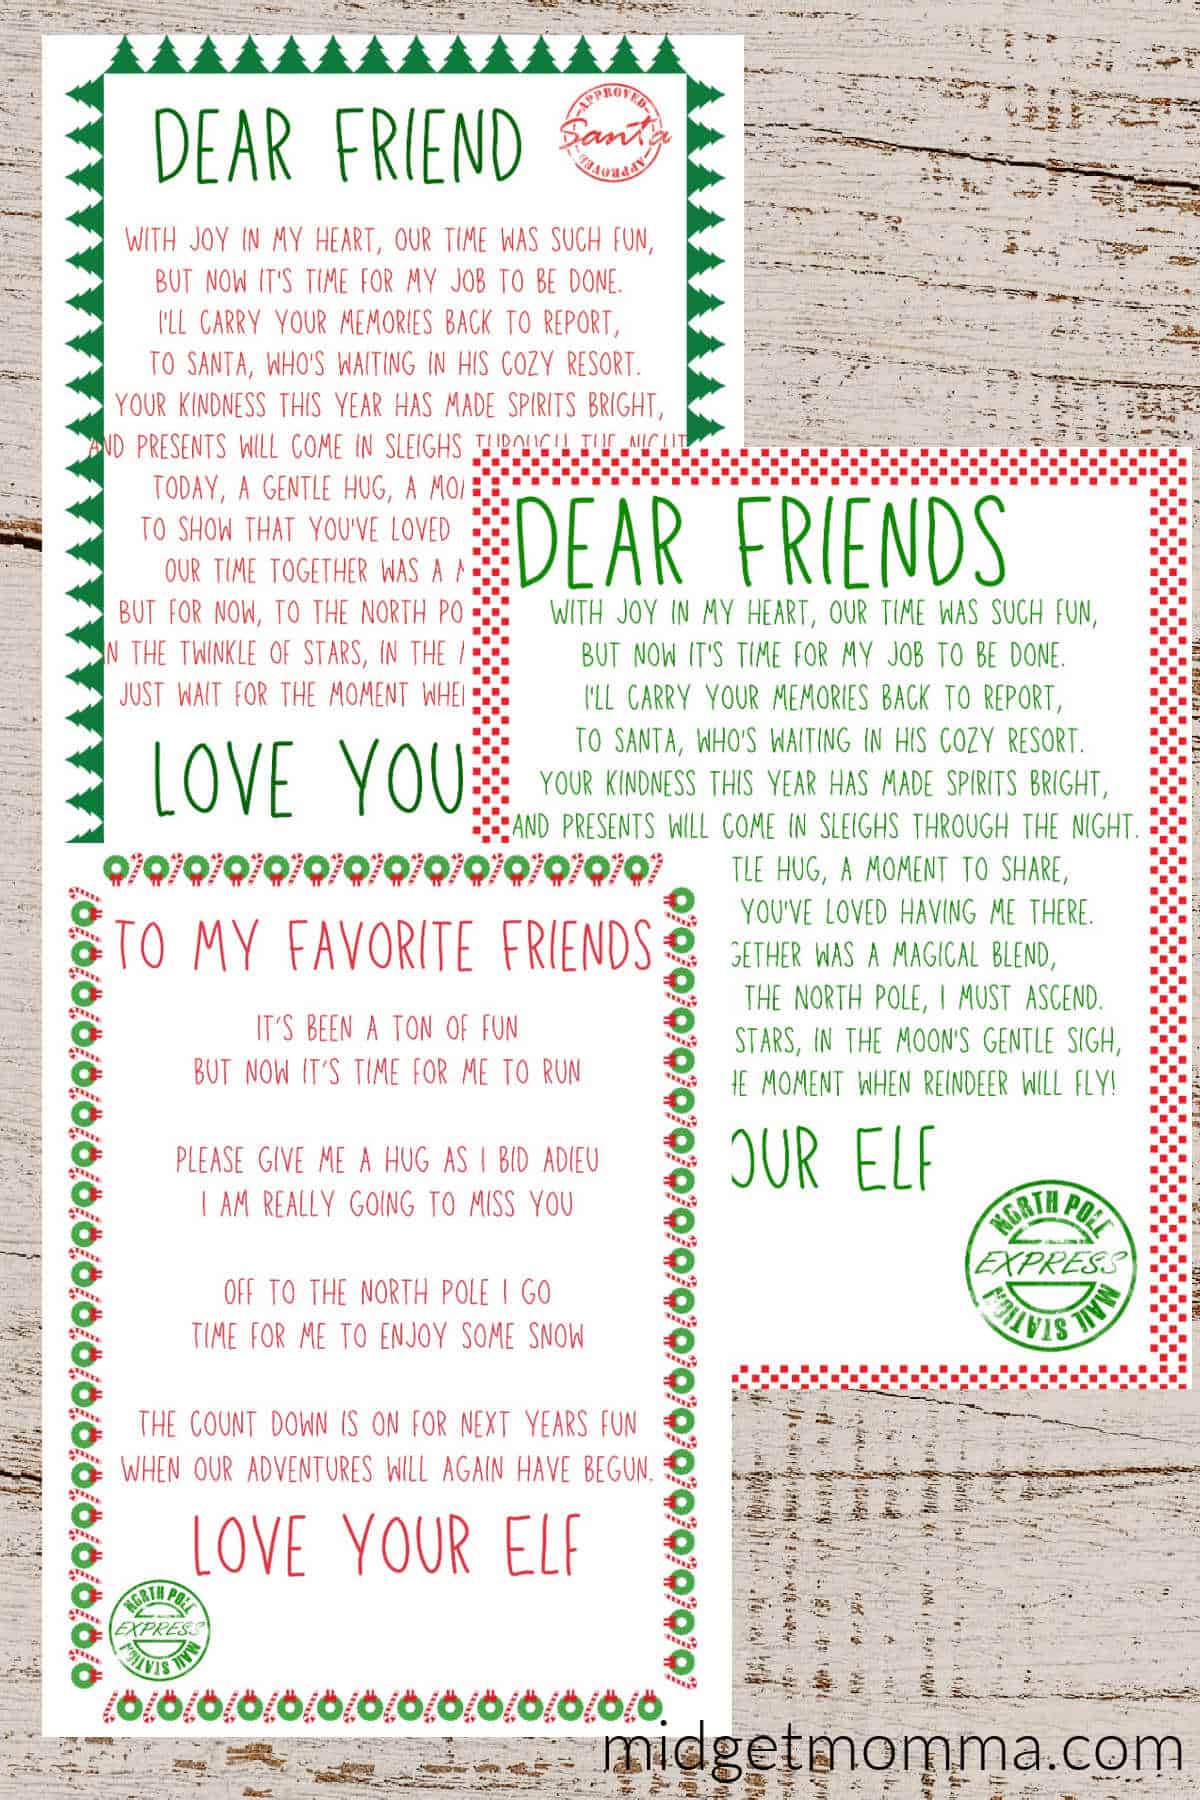 DEAR FRIEND
APPROVED
Santa
APPROVED
WITH JOY IN MY HEART, OUR TIME WAS SUCH FUN,
BUT NOW IT'S TIME FOR MY JOB TO BE DONE.
I'LL CARRY YOUR MEMORIES BACK TO REPORT,
TO SANTA, WHO'S WAITING IN HIS COZY RESORT.
YOUR KINDNESS THIS YEAR HAS MADE SPIRITS BRIGHT,
AND PRESENTS WILL COME IN SLEIGHS THROUGH THE NIGHT
TODAY, A GENTLE HUG, A
TO SHOW THAT YOU'VE LOVED
OUR TIME TOGETHER WAS A
BUT FOR NOW, TO THE NORTH PO
N THE TWINKLE OF STARS, IN THE
JUST WAIT FOR THE MOMENT WHE
LOVE YOU
DEAR FRIENDS
WITH JOY IN MY HEART, OUR TIME WAS SUCH FUN,
BUT NOW IT'S TIME FOR MY JOB TO BE DONE.
I'LL CARRY YOUR MEMORIES BACK TO REPORT,
TO SANTA, WHO'S WAITING IN HIS COZY RESORT.
YOUR KINDNESS THIS YEAR HAS MADE SPIRITS BRIGHT,
AND PRESENTS WILL COME IN SLEIGHS THROUGH THE NIGHT.
TLE HUG, A MOMENT TO SHARE,
YOU'VE LOVED HAVING ME THERE.
GETHER WAS A MAGICAL BLEND,
THE NORTH POLE, I MUST ASCEND.
STARS, IN THE MOON'S GENTLE SIGH,
HE MOMENT WHEN REINDEER WILL FLY!
OUR ELF
NORTH POLE
EXPRESS
MAIL STATION
TO MY FAVORITE FRIENDS
IT'S BEEN A TON OF FUN
BUT NOW IT'S TIME FOR ME TO RUN
PLEASE GIVE ME A HUG AS I BID ADIEU
I AM REALLY GOING TO MISS YOU
OFF TO THE NORTH POLE I GO
TIME FOR ME TO ENJOY SOME SNOW
THE COUNT DOWN IS ON FOR NEXT YEARS FUN
WHEN OUR ADVENTURES WILL AGAIN HAVE BEGUN.
LOVE YOUR ELF
NORTH POLE
EXPRESS
MAIL STATION
midgetmomma.com